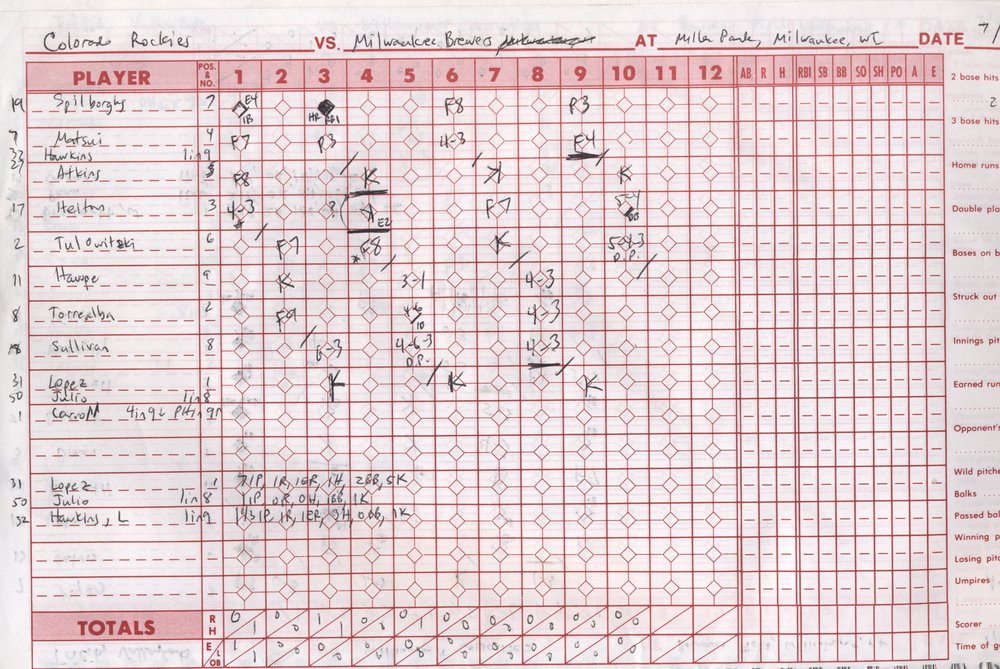 Colorado Rockies VS. Milwaukee Brewers AT Miller Park, Milwaukee, WI DATE 7/
PLAYER POS. & NO. 1 2 3 4 5 6 7 8 9 10 11 12 AB R H RBI SB BB SO SH PO A E
2 base hits
19 Spilborghs 7 E4 1B HR RBI F8 P3
2
3 base hits
7 Matsui 4 F7 P3 4-3 F4
Hawkins 1in9
Atkins 5 F8 K K K
Home runs
17 Helton 3 4-3 ? K E2 F7 5-4 BB
Double pla
2 Tulowitzki 6 F7 F8 K 5-4-3 D.P.
Bases on b
11 Hawpe 9 K 3-1 4-3
Struck out
8 Torrealba 2 F9 4-6 1B 4-3
18 Sullivan 8 6-3 4-6-3 D.P. 4-3
Innings pit
31 Lopez 1 K K K
Earned run
50 Julio 1in8
Carroll 4in9
Opponent's
31 Lopez 1 7IP, 1R, 1ER, 1H, 2BB, 5K
Wild pitche
50 Julio 1in8 1IP 0R, 0H, 1BB, 1K
Balks
Hawkins, L 1in9 1 1/3 IP, 1R, 1ER, 3H, 0BB, 1K
Passed bal
Winning p
Losing pitc
Umpires
TOTALS R H 0 1 0 0 1 1 0 0 0 1 0 0 0 0 0 0 0 0 0 0
Scorer
E LOB 1 1 0 0 0 0 1 1 0 0 0 0 0 0 0 0 0 0 0 0
Time of g